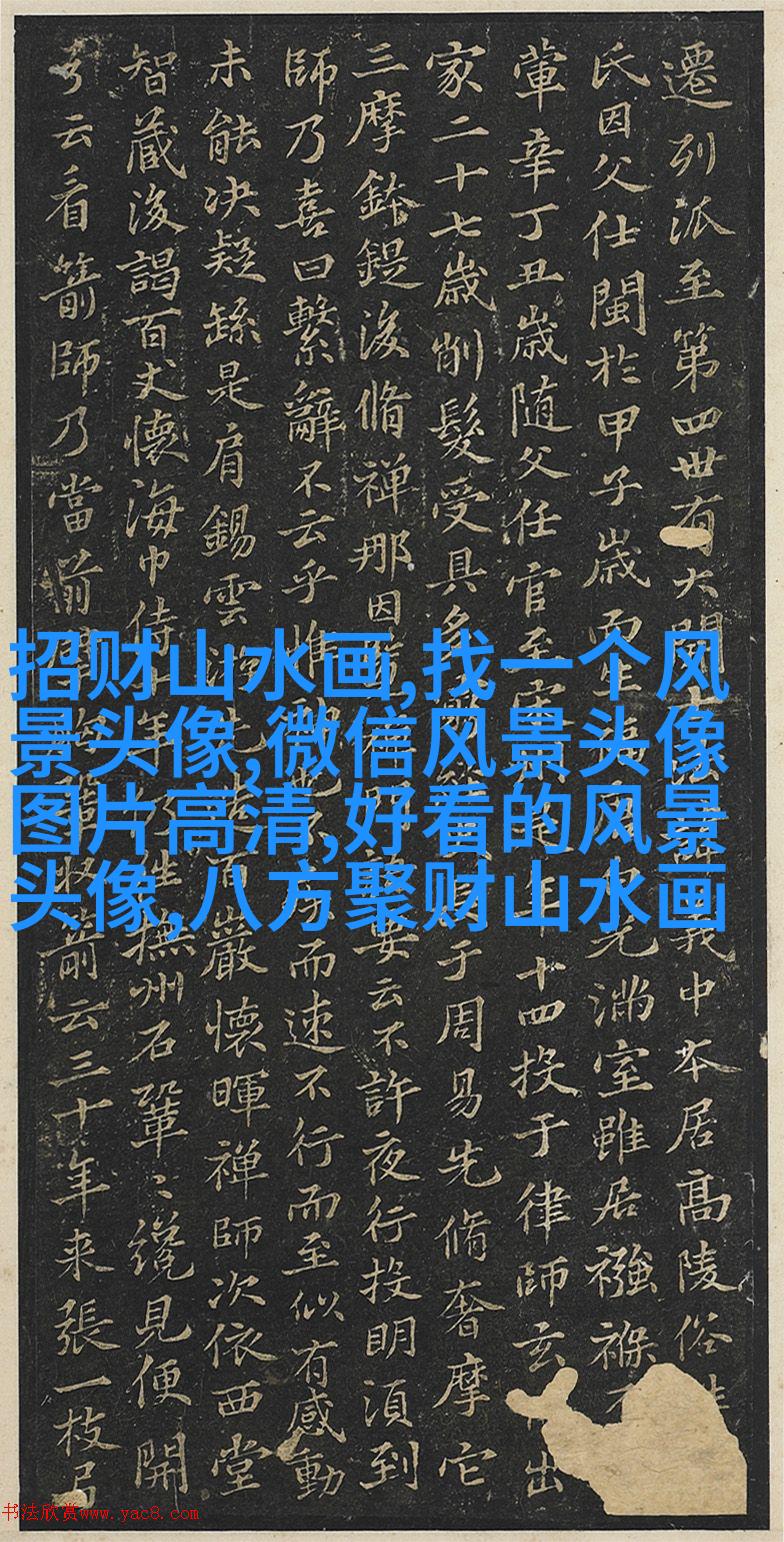 遷列派至第四世有大闡義中本居髙陵俗
氏因父仕閩於甲子歲而生光滿室雖居襁褓
葷辛丁丑歲随父任官至年十四投于律師玄出
家二十七歲削髮受具多于周易先脩奢摩它
三摩鉢鍉後脩禪那因云不許夜行投明須到
師乃喜曰繫辭不云乎惟而速不行而至似有感動
未能决疑繇是肩錫雲游百巖懷暉禪師次依西堂
智藏後謁百丈懷海巾侍年撫州石鞏〻纔見便開
弓云看箭師乃當前箭云三十年来張一枝弓
招财山水画,找一个风
景头像,微信风景头像
图片高清,好看的风景
头像,八方聚财山水画
书法欣赏www.yac8.com